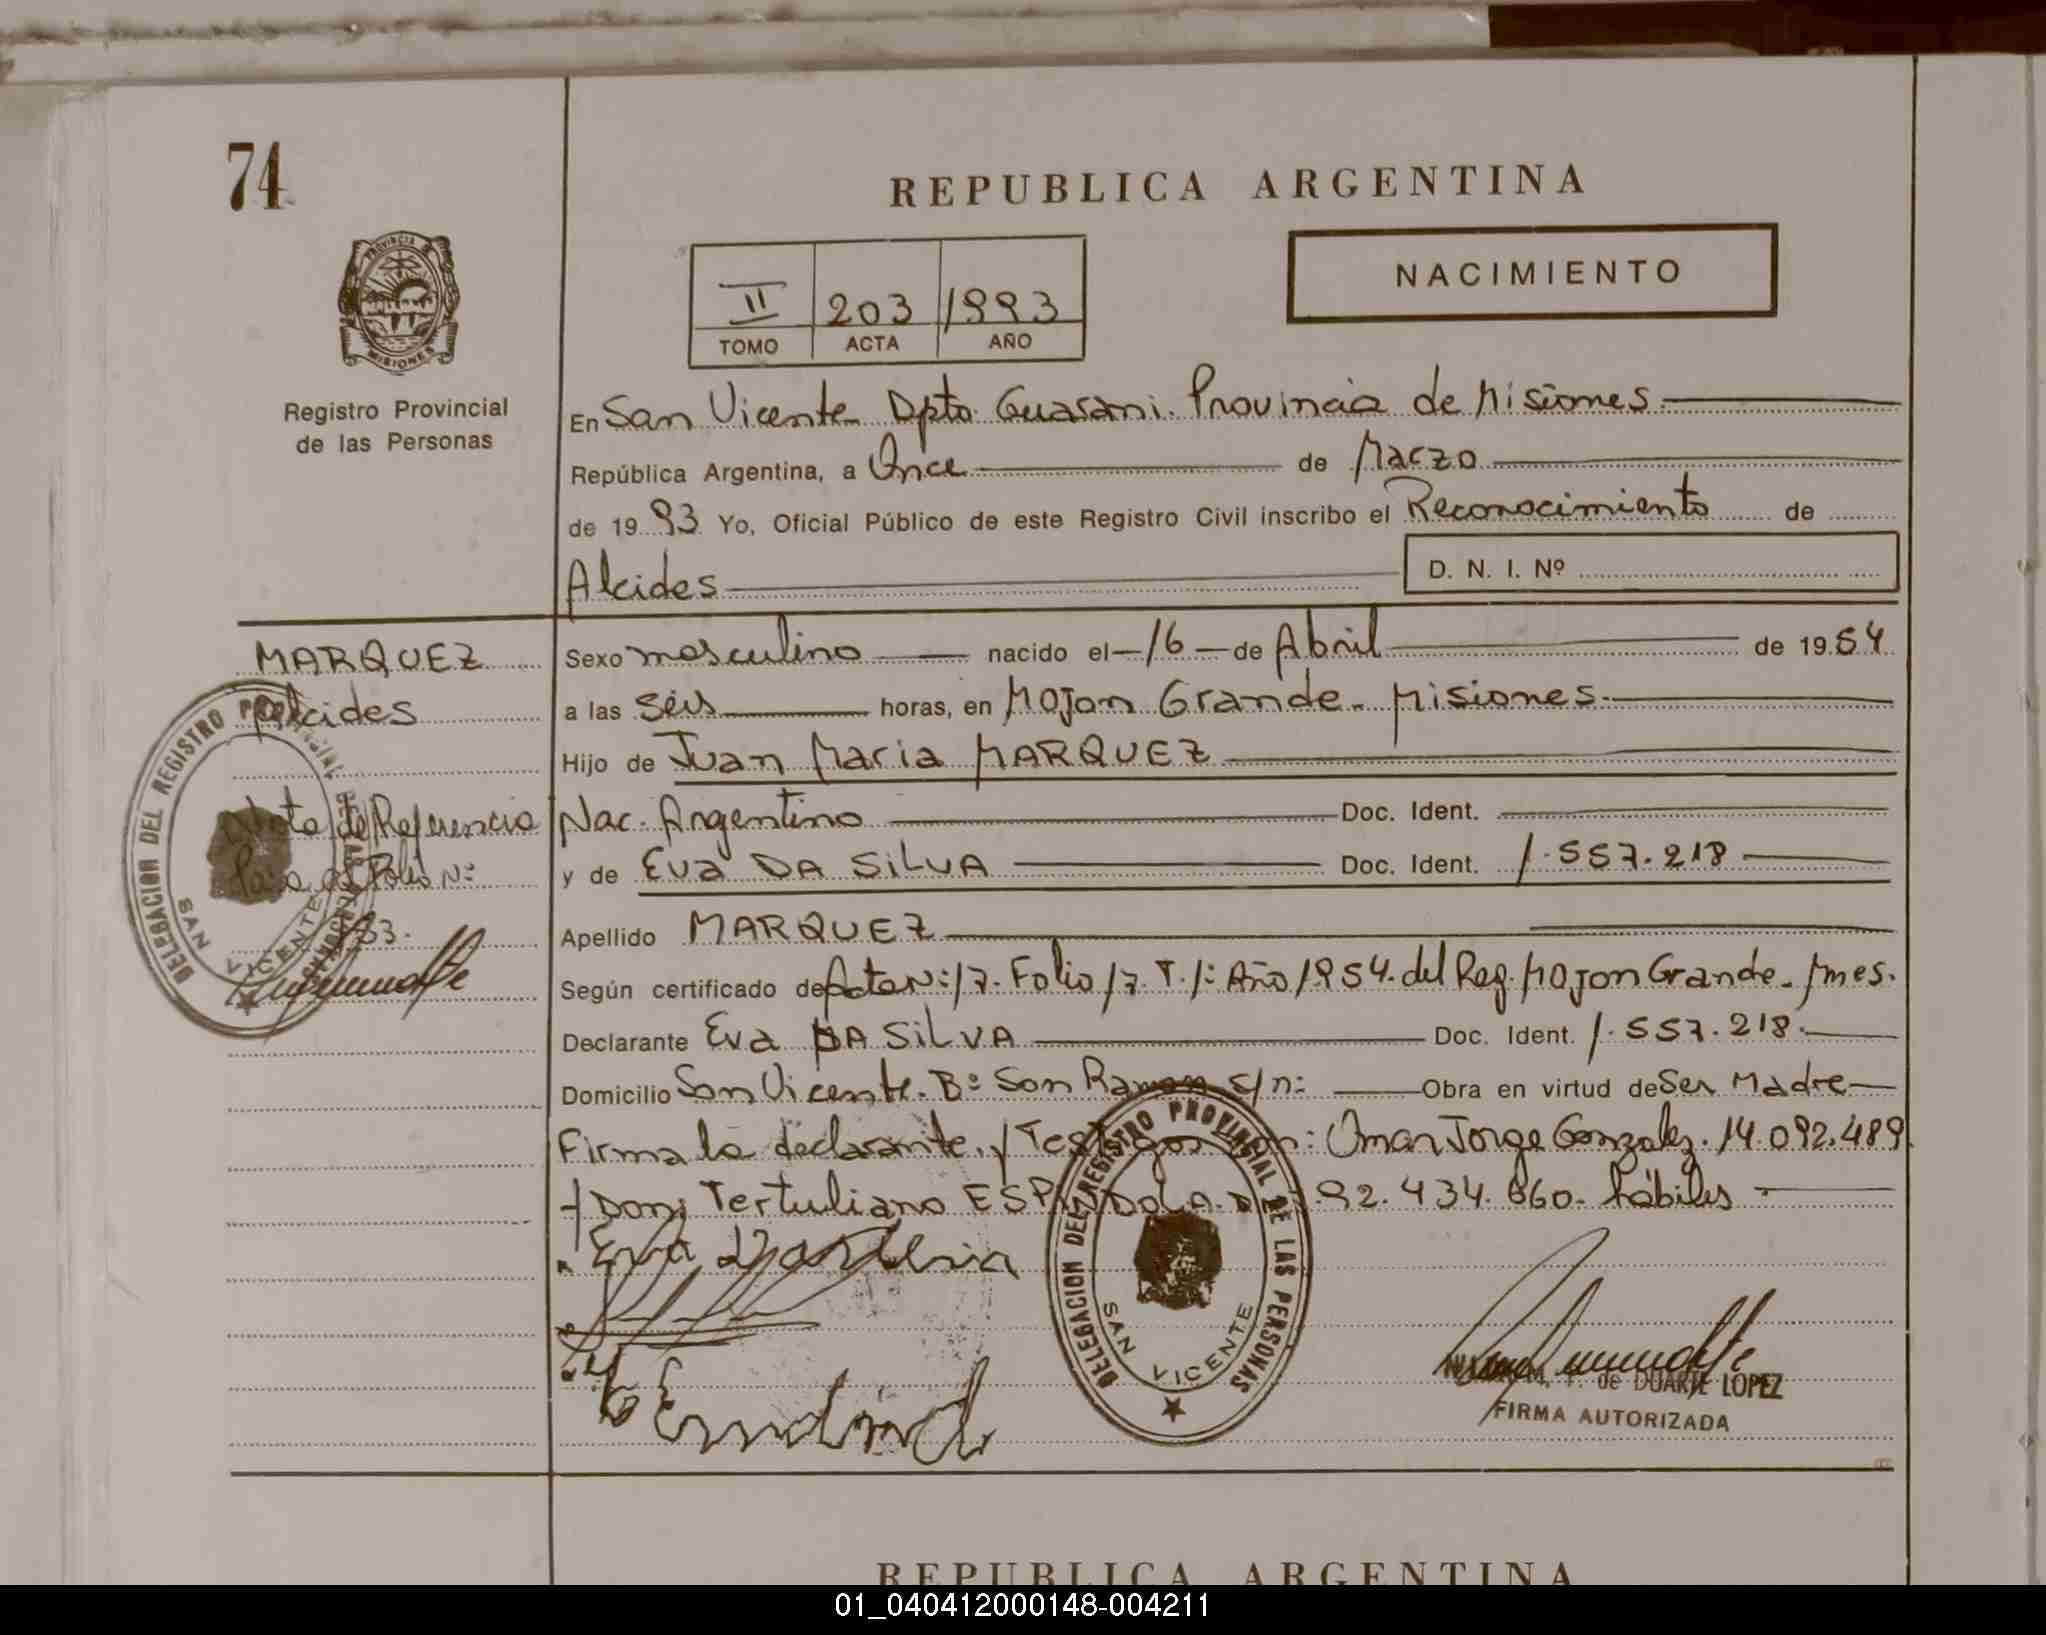 74
REPUBLICA ARGENTINA
PROVINCIA DE
MISIONES
Registro Provincial
de las Personas
II 203 1993
TOMO ACTA AÑO
NACIMIENTO
En San Vicente Dpto. Guarani. Provincia de Misiones
República Argentina, a Once de Marzo
de 19 93 Yo, Oficial Público de este Registro Civil inscribo el Reconocimiento de
Alcides D. N. I. Nº
MARQUEZ
Alcides
Nota de Referencia
Pasa al Folio Nº
DELEGACION DEL REGISTRO PROVINCIAL DE LAS PERSONAS
SAN VICENTE
Sexo masculino nacido el -16- de Abril de 19 54
a las seis horas, en Mojon Grande. Misiones.
Hijo de Juan Maria MARQUEZ
Nac. Argentino Doc. Ident.
y de Eva DA SILVA Doc. Ident. 1.557.218
Apellido MARQUEZ
Según certificado de Acta Nº 17. Folio 17. T. 1: Año 1954. del Reg. Mojon Grande. Mnes.
Declarante Eva DA SILVA Doc. Ident. 1.557.218.
Domicilio San Vicente. Bº San Ramon s/nº Obra en virtud de Ser Madre
Firma la declarante. y Testigos Don: Omar Jorge Gonzalez. 14.092.489
y Don: Tertuliano ESPINDOLA. D 92.434.660. hábiles
Eva
DELEGACION DEL REGISTRO PROVINCIAL DE LAS PERSONAS
SAN VICENTE
de DUARTE LOPEZ
FIRMA AUTORIZADA
REPUBLICA ARGENTINA
01_040412000148-004211